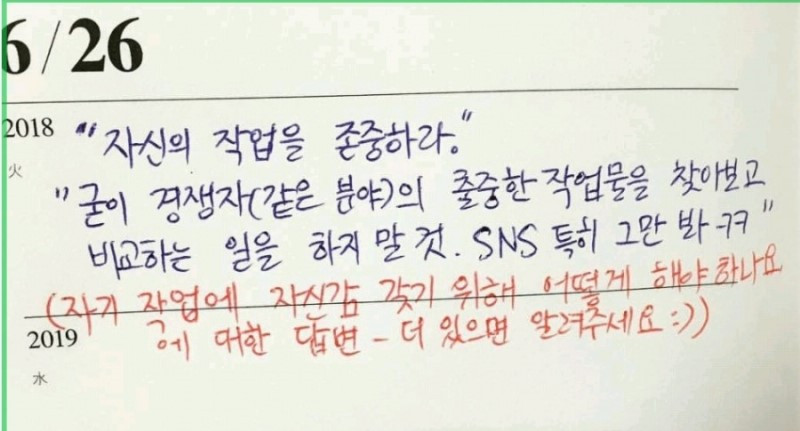 6/26
2018 "자신의 작업을 존중하라."
火
"굳이 경쟁자(같은 분야)의 출중한 작업물을 찾아보고
비교하는 일을 하지 말 것. SNS 특히 그만 봐 ㅋㅋ"
(자기 작업에 자신감 갖기 위해 어떻게 해야 하나요
에 대한 답변 - 더 있으면 알려주세요 :))
2019
水